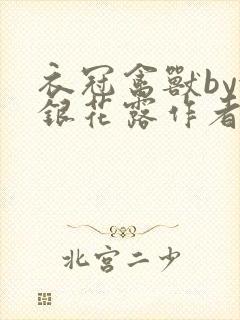 衣冠禽獸by
銀花露作者
北宮二少